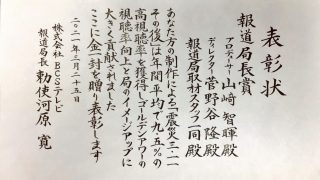 表彰状
報道局長賞
プロデューサー 山﨑智暉殿
ディレクター 菅野谷隆殿
報道局取材スタッフ一同殿
あなた方の制作による「震災三・一一
その後」は年間平均で九・五%の
高視聴率を獲得しゴールデンアワーの
視聴率向上と局のイメージアップに
大きく貢献されました
ここに金一封を贈り表彰します
二〇二一年三月二十五日
株式会社BCGSテレビ
報道局長 勅使河原 寛